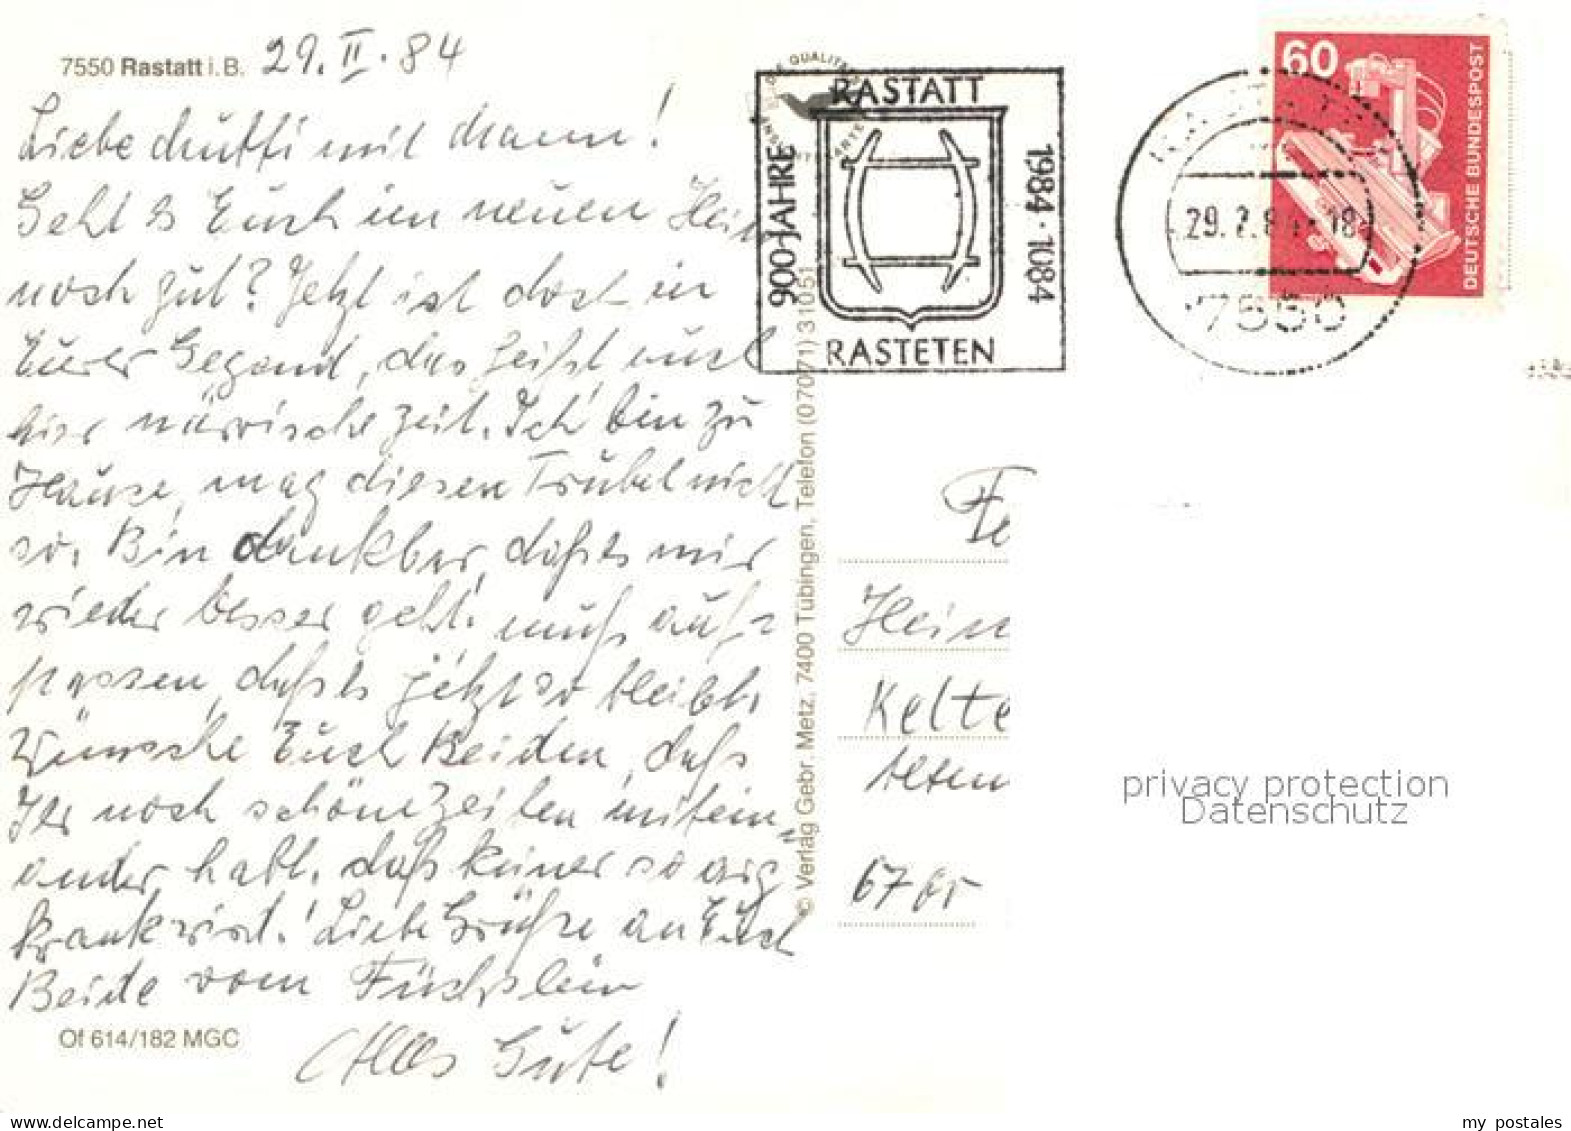 7550 Rastatt i. B. 29. II. 84
Liebe Mutti mit Mann!
Geht's Euch im neuen Heim
noch gut? Jetzt ist doch in
Eurer Gegend, das heißt auch
hier närrische Zeit. Ich bin zu
Hause, mag diesen Trubel nicht
so. Bin dankbar, daß es mir
wieder besser geht. muß auf-
passen, daß es jetzt so bleibt.
Wünsche Euch Beiden, daß
Ihr noch schöne Zeiten mitein-
ander habt, daß keiner so arg
krank wird! Liebe Grüße an Euch
Beide vom Füchslein
Alles Gute!
Of 614/182 MGC
© Verlag Gebr. Metz, 7400 Tübingen, Telefon (07071) 31051
RASTATT
900 JAHRE
1984 · 1084
RASTETEN
29. 2. 84 - 18
7550
60
DEUTSCHE BUNDESPOST
Kelte
privacy protection
Datenschutz
my postales